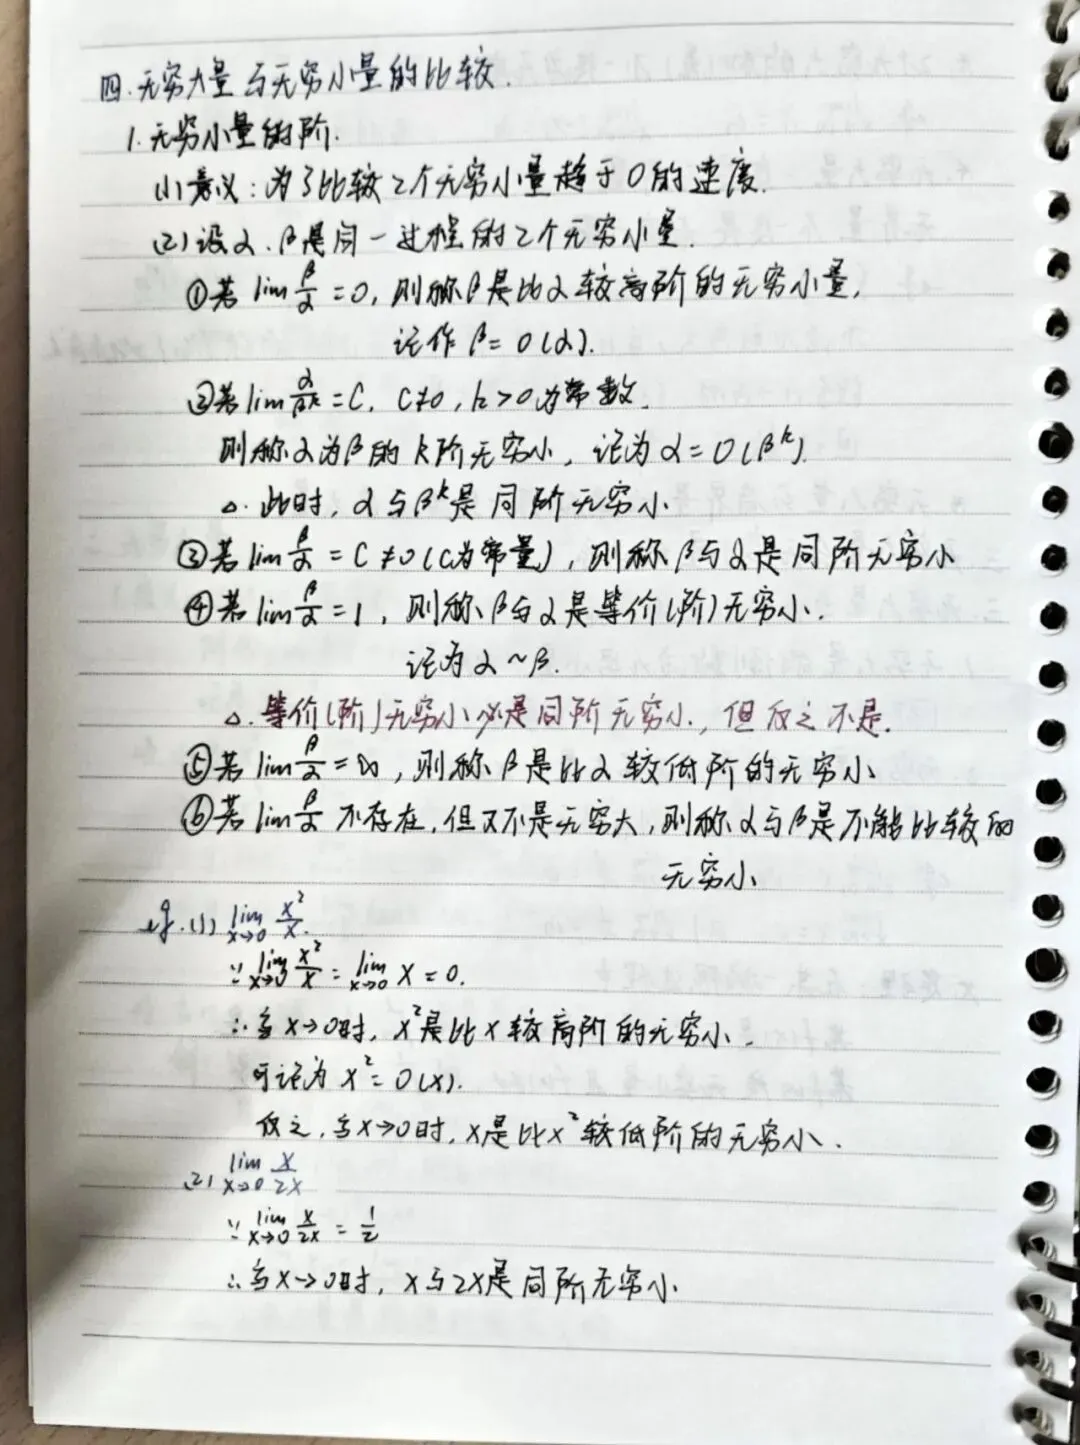 四.无穷大量与无穷小量的比较.
1.无穷小量的阶.
(1)意义:为了比较2个无穷小量趋于0的速度.
(2)设α.β是同一过程的2个无穷小量.
①若 lim β/α =0, 则称β是比α较高阶的无穷小量,
记作 β=0(α).
②若 lim α/βᵏ =C, C≠0, k>0为常数.
则称α为β的k阶无穷小, 记为α=0(βᵏ).
△.此时, α与βᵏ是同阶无穷小
③若 lim β/α = C≠0(C为常量), 则称β与α是同阶无穷小
④若 lim β/α =1, 则称β与α是等价(阶)无穷小.
记为α~β.
△.等价(阶)无穷小必是同阶无穷小, 但反之不是.
⑤若 lim β/α =∞, 则称β是比α较低阶的无穷小
⑥若 lim β/α 不存在,但又不是无穷大,则称α与β是不能比较的
无穷小
eg.(1) lim x→0 x²/x.
∵ lim x→0 x²/x = lim x→0 x=0.
∴当x→0时, x²是比x较高阶的无穷小.
可记为 x²=0(x).
反之,当x→0时, x是比x²较低阶的无穷小.
(2) lim x→0 x/2x
∵ lim x→0 x/2x = 1/2
∴当x→0时, x与2x是同阶无穷小.